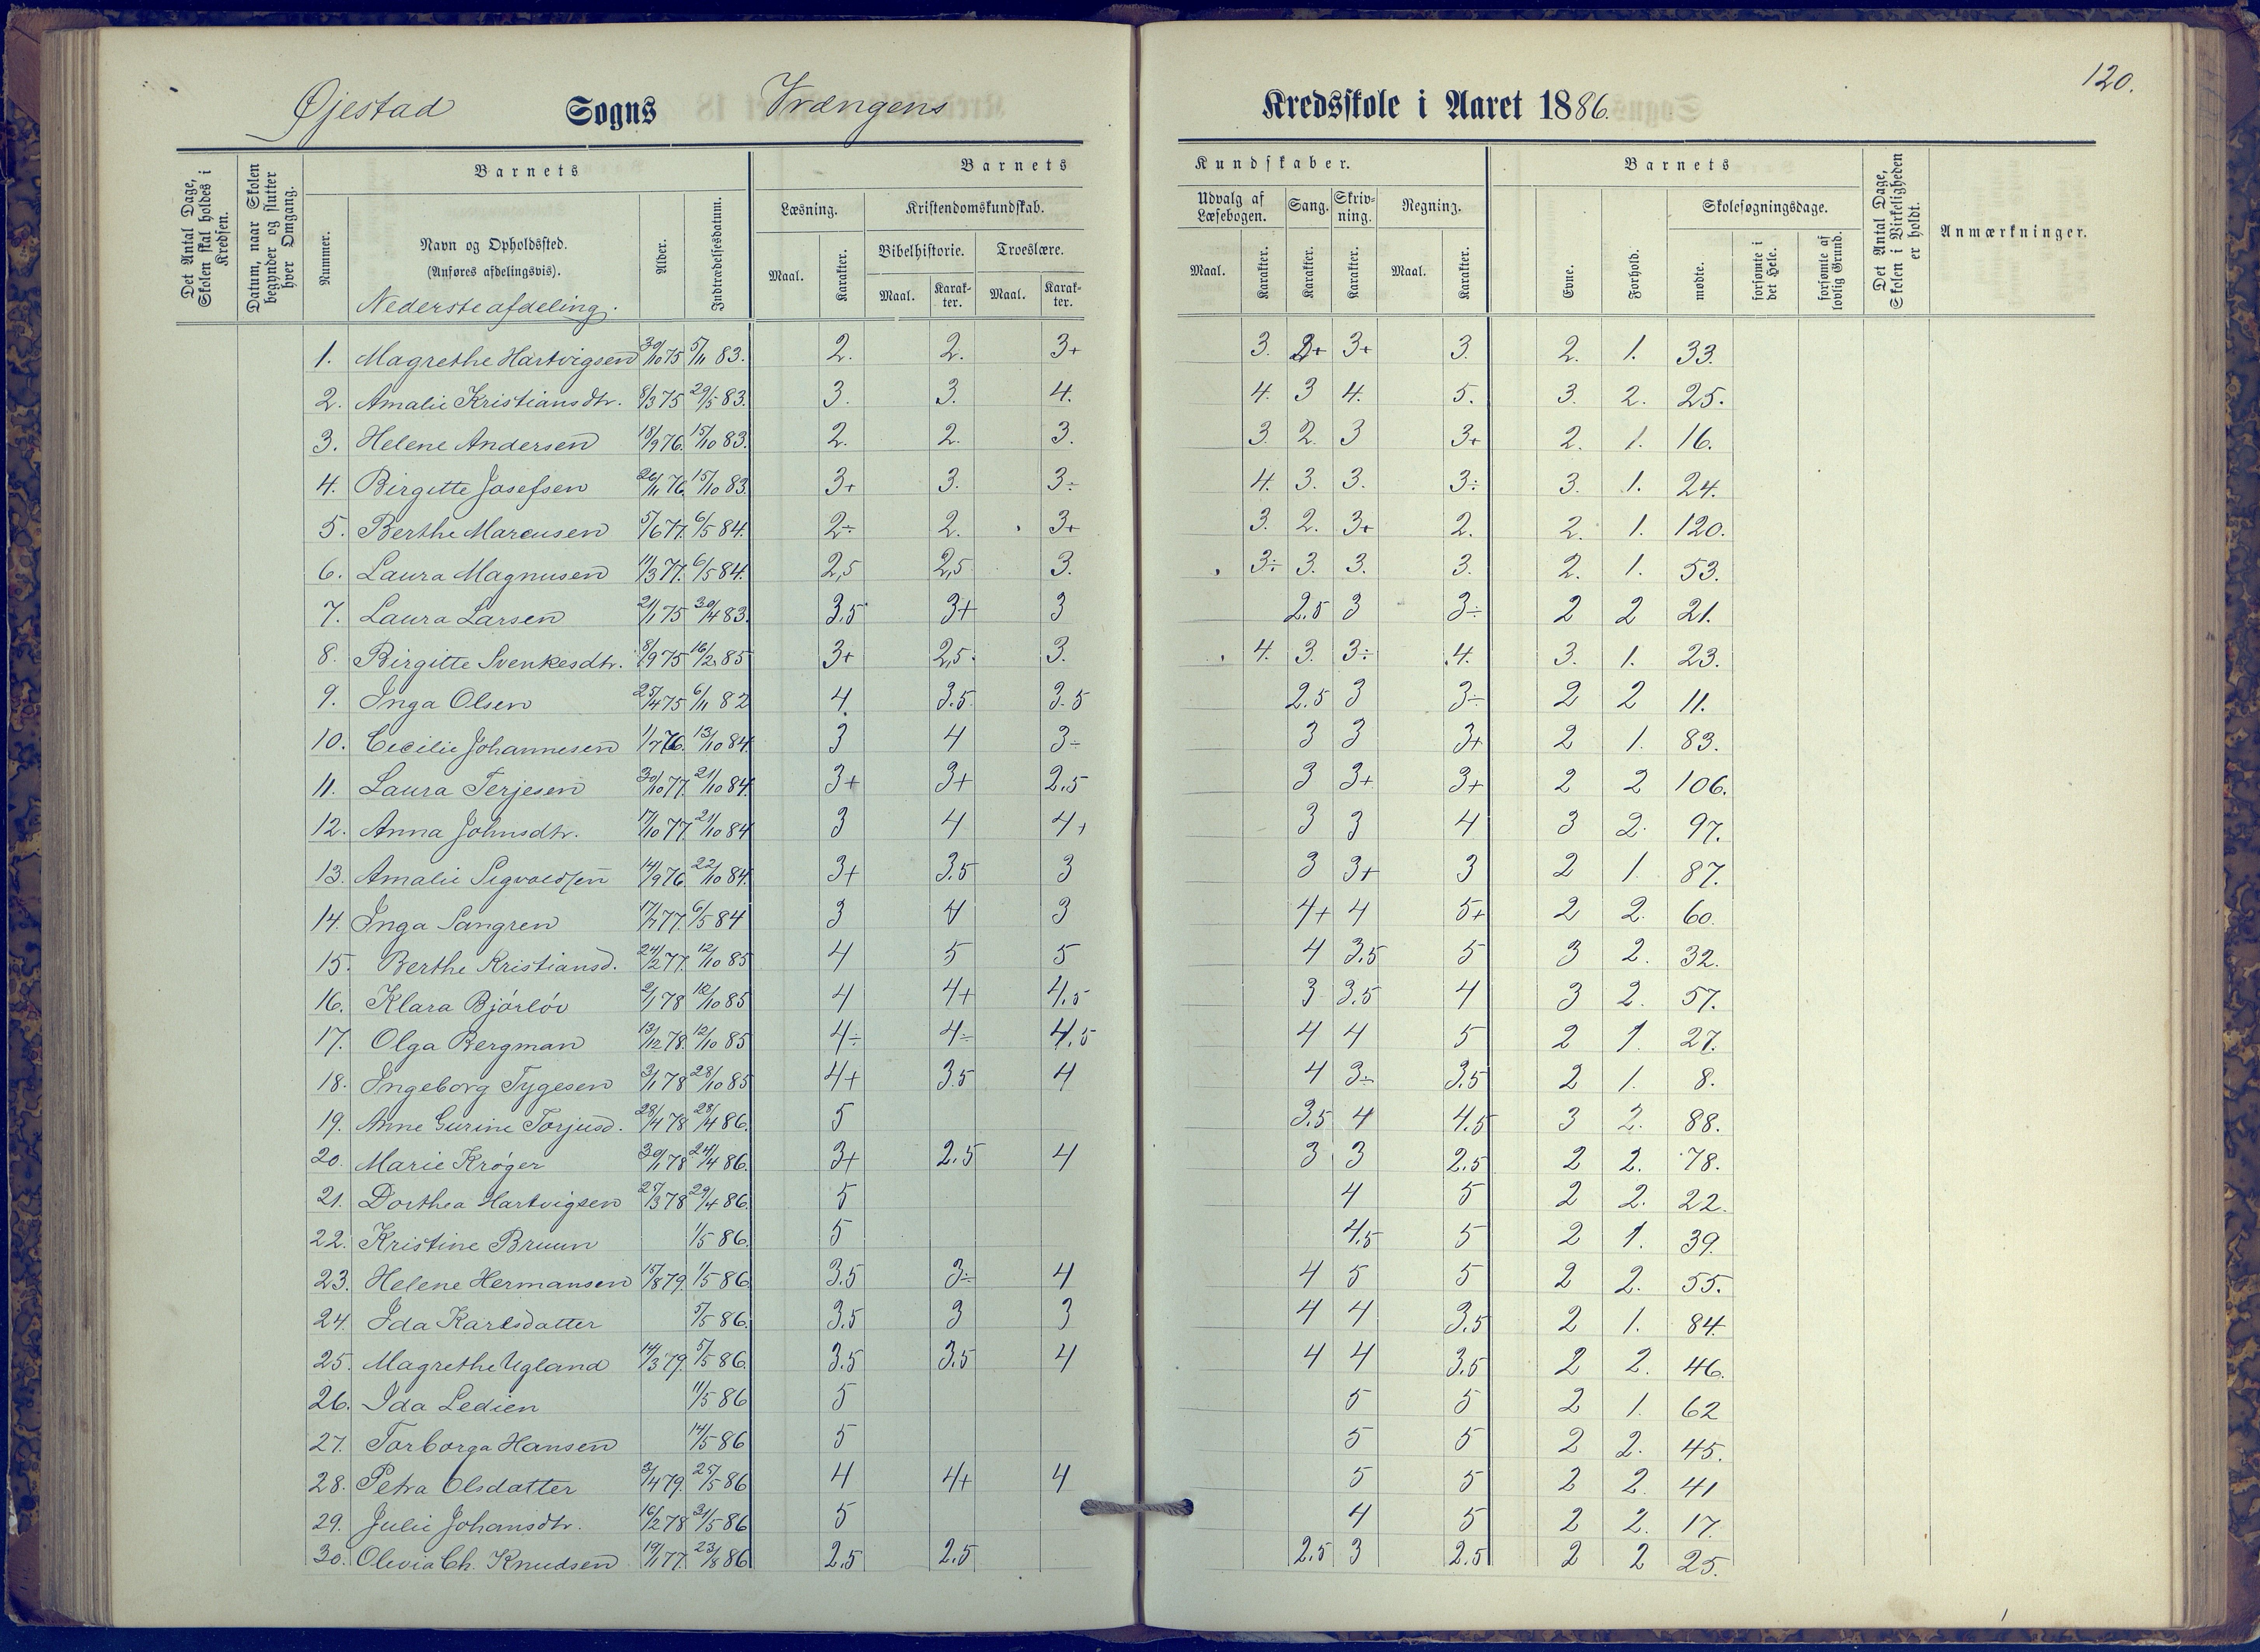 120.
Øjestad Sogns Vrængens Kredsskole i Aaret 1886.
Det Antal Dage, Skolen skal holdes i Kredsen.
Datum, naar Skolen begynder og slutter hver Omgang.
Barnets
Nummer.
Navn og Opholdssted.
(Anføres afdelingsvis).
Nederste afdeling.
Alder.
Indtrædelsesdatum.
Barnets Kundskaber.
Læsning. Kristendomskundskab. Udvalg af Læsebogen. Sang. Skrivning. Regning.
Bibelhistorie. Troeslære.
Maal. Karakter. Maal. Karakter. Maal. Karakter. Maal. Karakter. Karakter. Karakter. Maal. Karakter.
Barnets
Evne. Forhold. Skolesøgningsdage.
mødte. forsømte i det Hele. forsømte af lovlig Grund.
Det Antal Dage, Skolen i Virkeligheden er holdt.
Anmærkninger.
1. Magrethe Hartvigsen 30/10 75 5/11 83. 2. 2. 3+ 3. 2+ 3+ 3. 2. 1. 33.
2. Amalie Kristiansdtr. 8/3 75 29/5 83. 3. 3. 4. 4. 3 4. 5. 3. 2. 25.
3. Helene Andersen 18/9 76. 15/10 83. 2. 2. 3. 3. 2. 3 3+ 2. 1. 16.
4. Birgitte Josefsen 26/11 76. 15/10 83. 3+ 3. 3÷ 4. 3. 3. 3÷ 3. 1. 24.
5. Berthe Marcusen 5/6 77. 6/5 84. 2÷ 2. 3+ 3. 2. 3+ 2. 2. 1. 120.
6. Laura Magnusen 11/3 77. 6/5 84. 2,5 2,5 3. 3÷ 3. 3. 3. 2. 1. 53.
7. Laura Larsen 21/1 75 30/4 83. 3.5 3+ 3 2.5 3 3÷ 2 2 21.
8. Birgitte Svenkesdtr. 8/9 75 16/2 85 3+ 2,5 3. 4. 3. 3÷ 4. 3. 1. 23.
9. Inga Olsen 25/4 75 6/11 82 4. 3.5 3.5 2.5 3 3÷ 2 2 11.
10. Cecilie Johannesen 1/7 76. 13/10 84. 3 4 3÷ 3 3 3+ 2 1. 83.
11. Laura Terjesen 30/10 77. 21/10 84. 3+ 3+ 2.5 3 3+ 3+ 2 2 106.
12. Anna Johnsdtr. 17/10 77. 21/10 84 3 4 4+ 3 3 4 3 2. 97.
13. Amalie Sigvaldsen 14/9 76. 22/10 84. 3+ 3.5 3 3 3+ 3 2 1 87.
14. Inga Sangren 17/7 77. 6/5 84 3 4 3 4+ 4 5+ 2 2. 60.
15. Berthe Kristiansd. 24/2 77. 12/10 85 4 5 5 4 3.5 5 3 2. 32.
16. Klara Bjórlóv 2/1 78 12/10 85 4 4+ 4.5 3 3.5 4 3 2. 57.
17. Olga Bergman 13/12 78. 12/10 85 4÷ 4÷ 4.5 4 4 5 2 1. 27.
18. Ingeborg Tygesen 3/1 78 28/10 85 4+ 3.5 4 4 3÷ 3.5 2 1. 8.
19. Anne Gurine Torjusd. 28/4 78 28/4 86. 5 3.5 4 4.5 3 2. 88.
20. Marie Króger 30/1 78 24/4 86. 3+ 2.5 4 3 3 2.5 2 2. 78.
21. Dorthea Hartvigsen 25/3 78 29/4 86. 5 4 5 2 2. 22.
22. Kristine Bruun 1/5 86. 5 4.5 5 2 1. 39.
23. Helene Hermansen 15/8 79. 1/5 86. 3.5 3÷ 4 4 5 5 2 2. 55.
24. Ida Karlsdatter 5/5 86. 3.5 3 3 4 4 3.5 2 1. 84.
25. Magrethe Ugland 14/3 79. 5/5 86. 3.5 3.5 4 4 4 3.5 2 2. 46.
26. Ida Ledien 11/5 86 5 5 5 2 1. 62
27. Torborga Hansen 14/5 86 5 5 5 2 2. 45.
28. Petra Olsdatter 3/4 79. 25/5 86 4 4+ 4 5 5 2 2. 41
29. Julie Johansdtr. 16/2 78 31/5 86 5 4 5 2 2. 17.
30. Olevia Ch. Knudsen 19/1 77. 23/8 86 2.5 2.5 2.5 3 2.5 2 2 25.